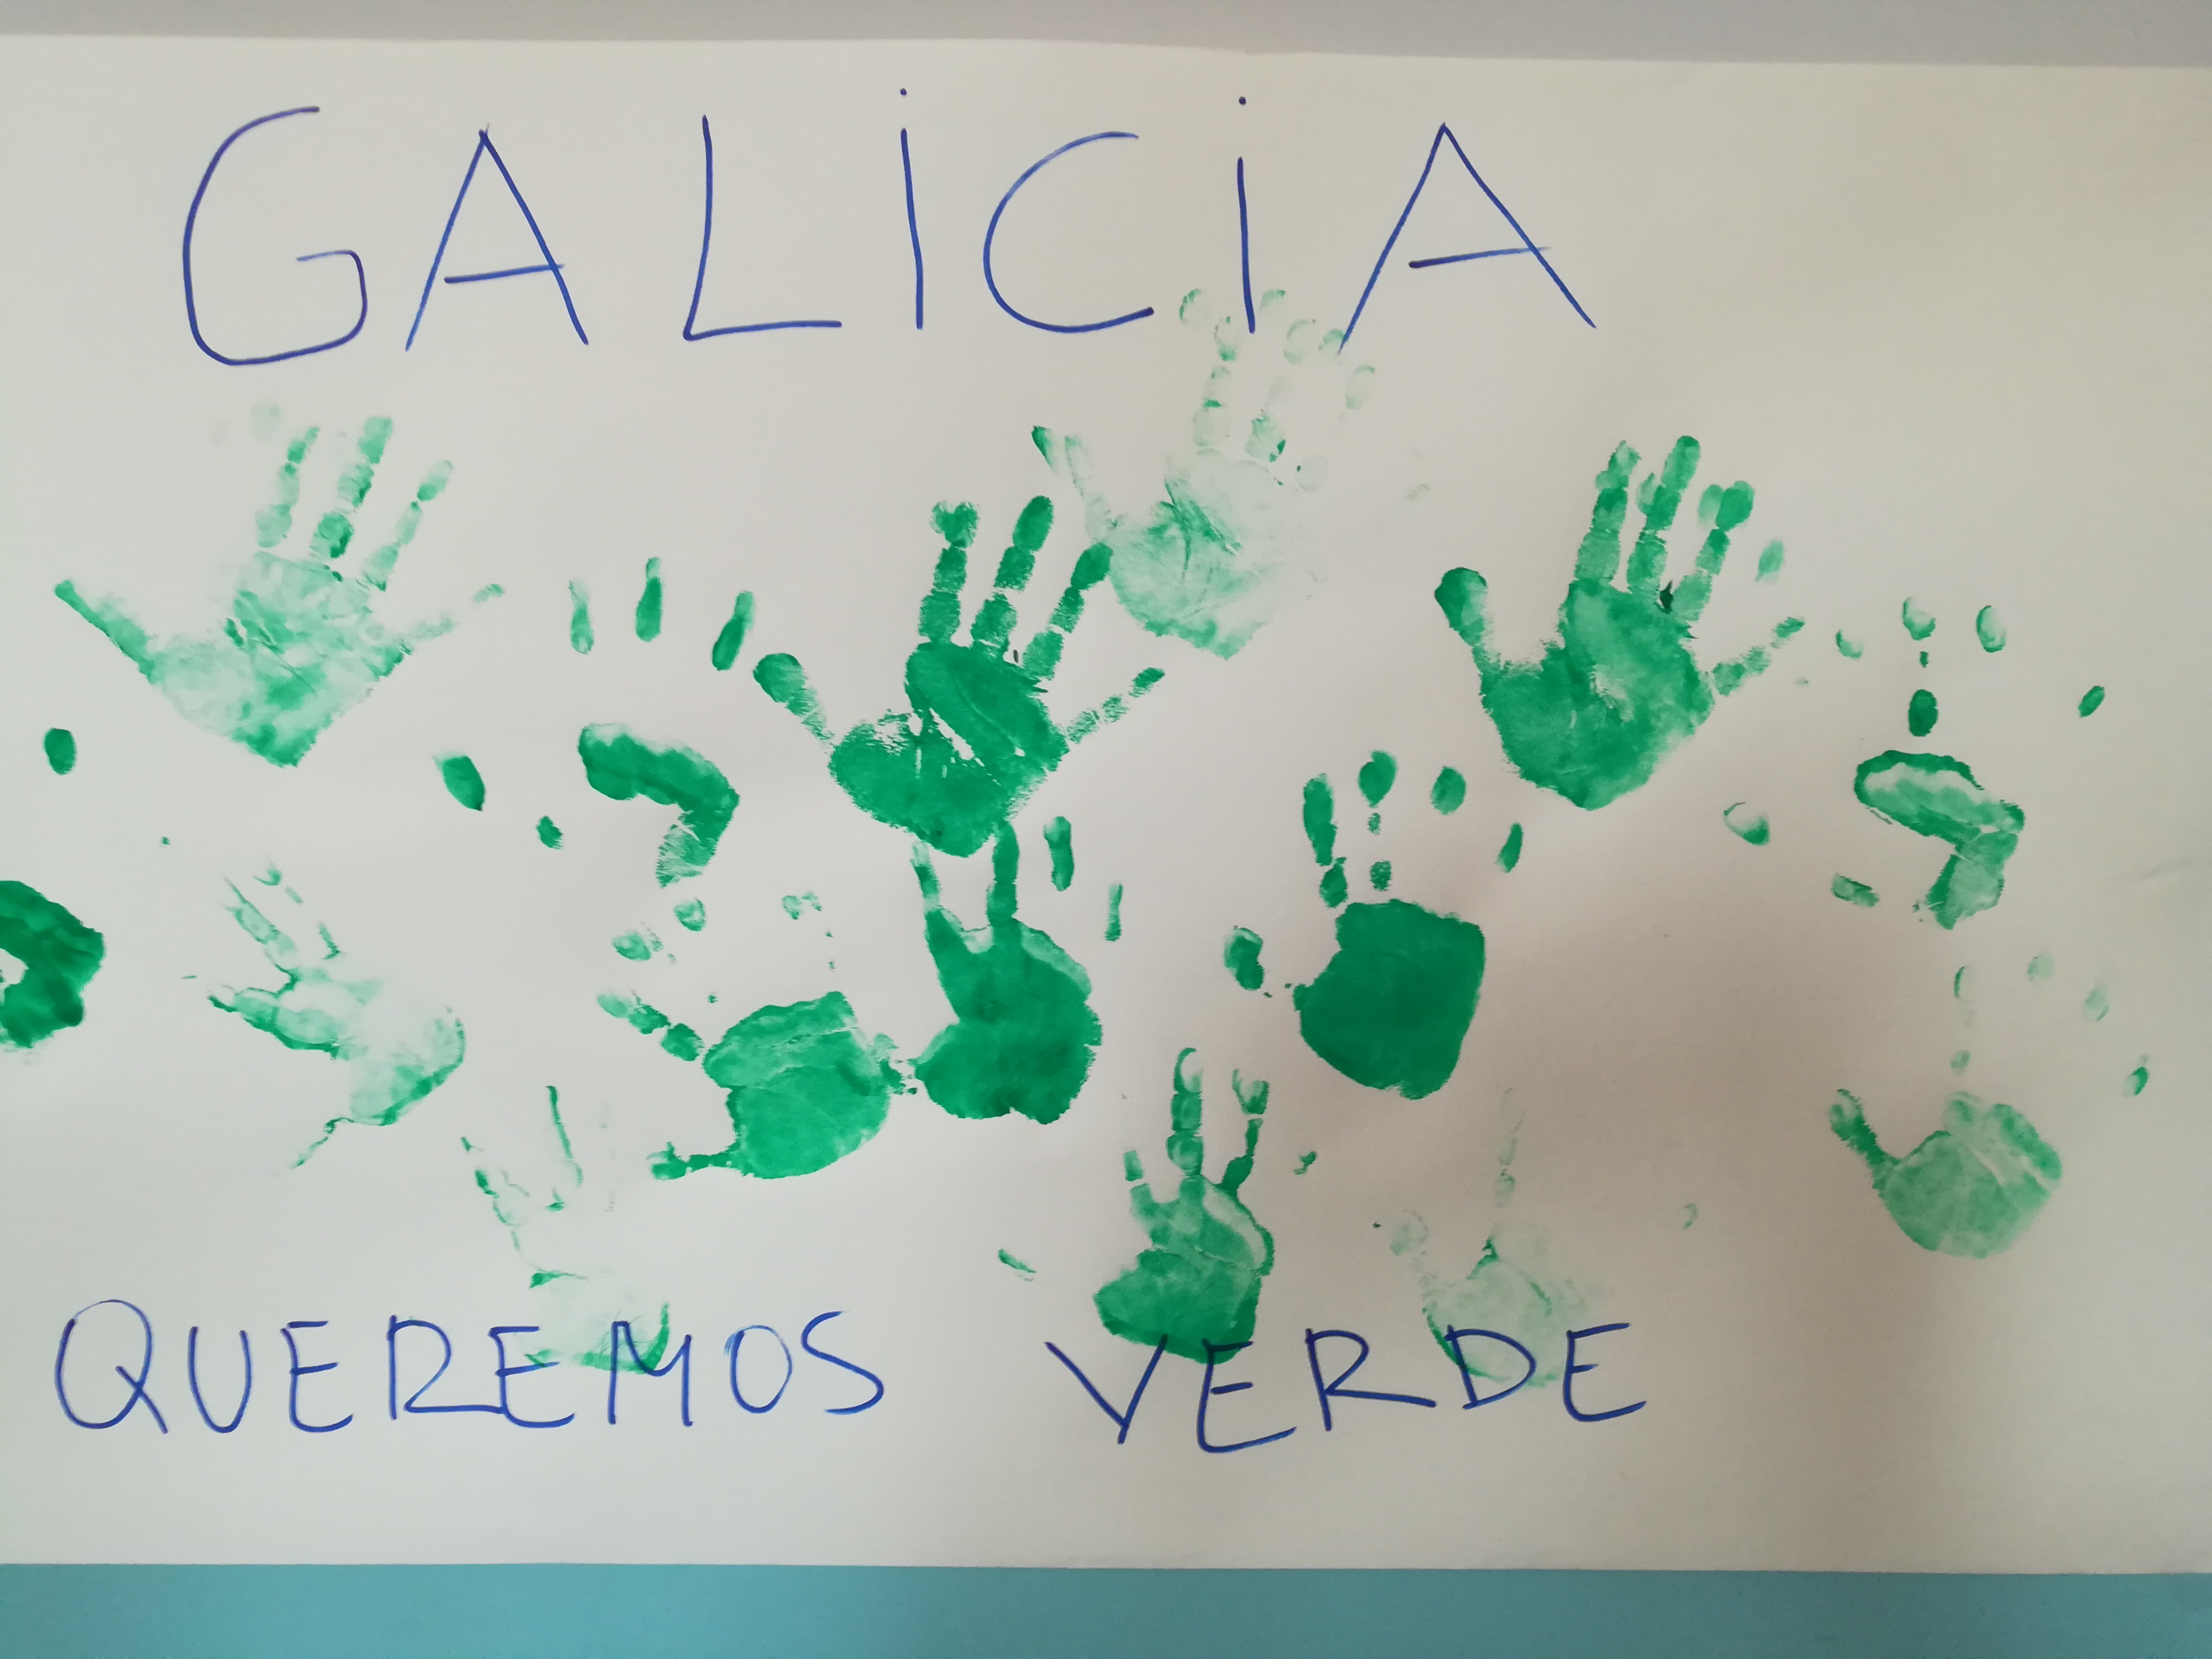 GALiCiA
QUEREMOS VERDE